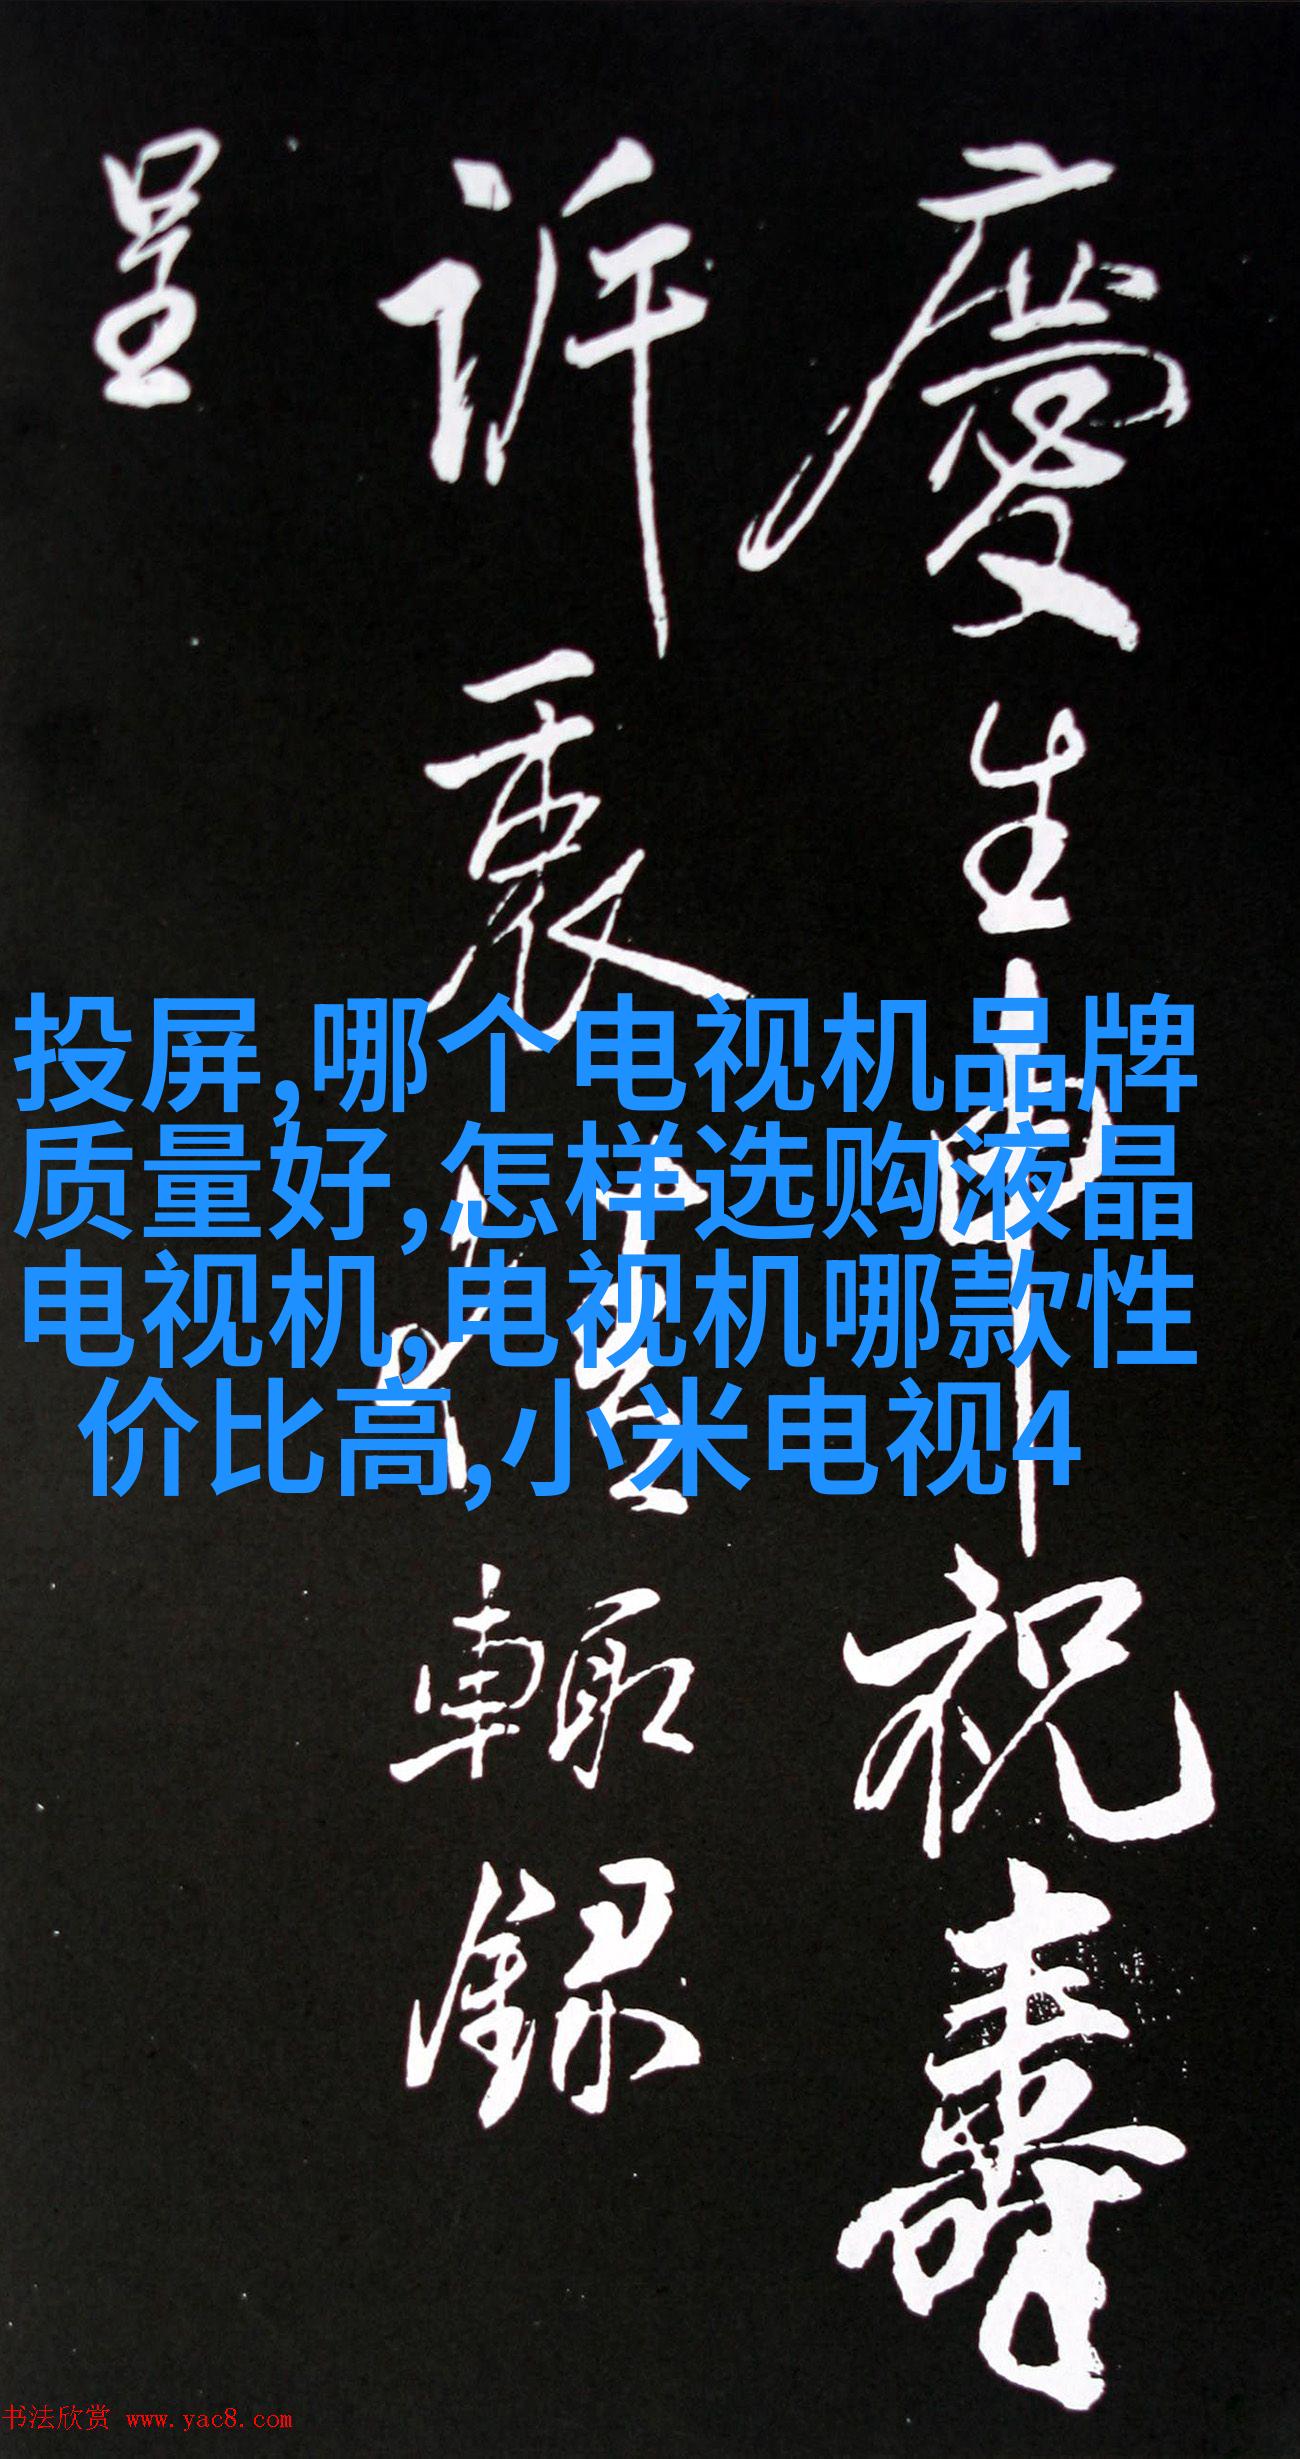 慶生申祝壽
訴衷情輒錄
呈
投屏,哪个电视机品牌
质量好,怎样选购液晶
电视机,电视机哪款性
价比高,小米电视4
书法欣赏 www.yac8.com